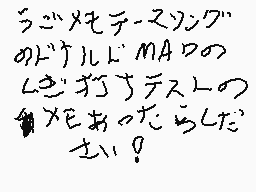 うごメモテーマソング
のドナルドMADの
しきぎりテストの
メモあったらくだ
さい!